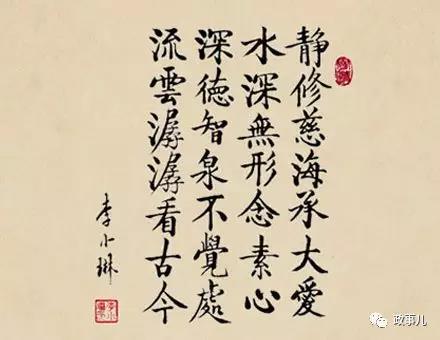 静修慈海承大愛
水深無形念素心
深德智泉不覺處
流雲潺潺看古今
李小琳
政事儿